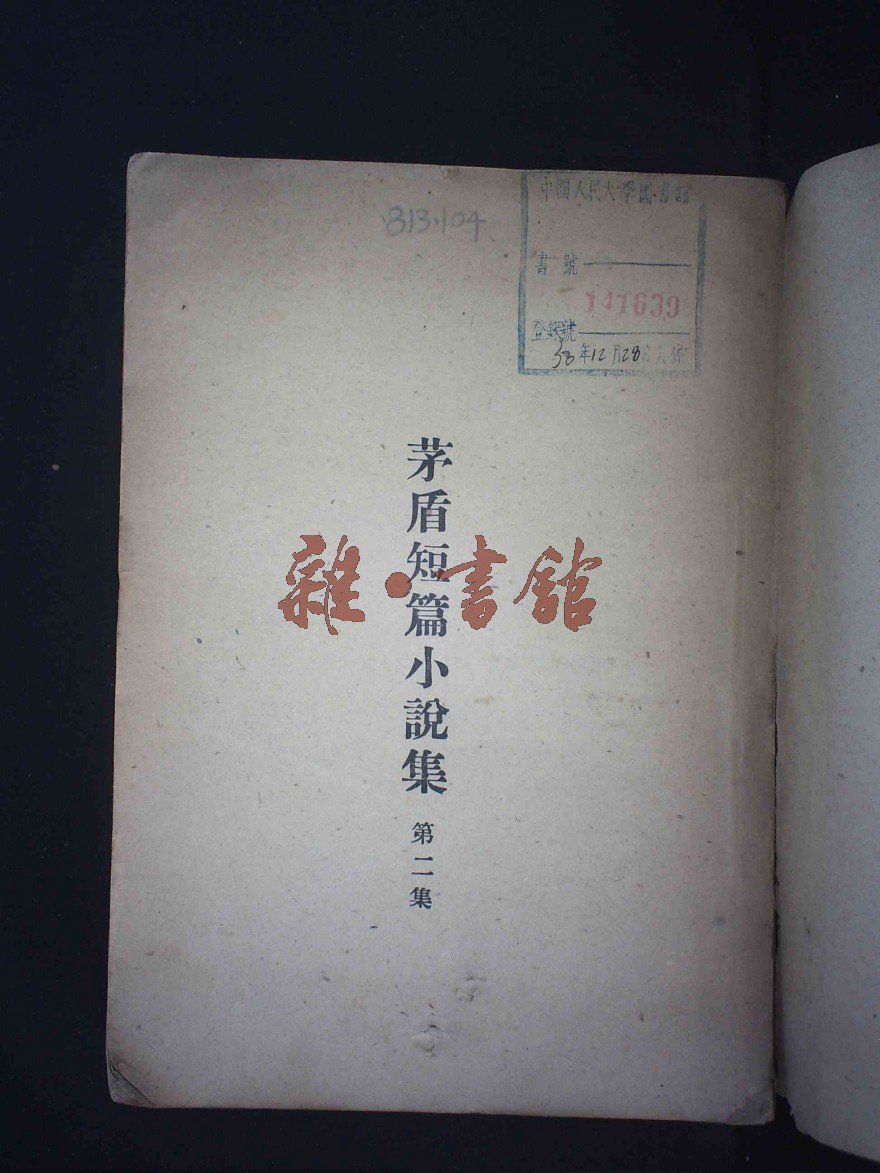 813.104
中國人民大學圖書館
書號
141639
登錄號
58年12月28日入館
茅盾短篇小說集
第二集
雜·書館